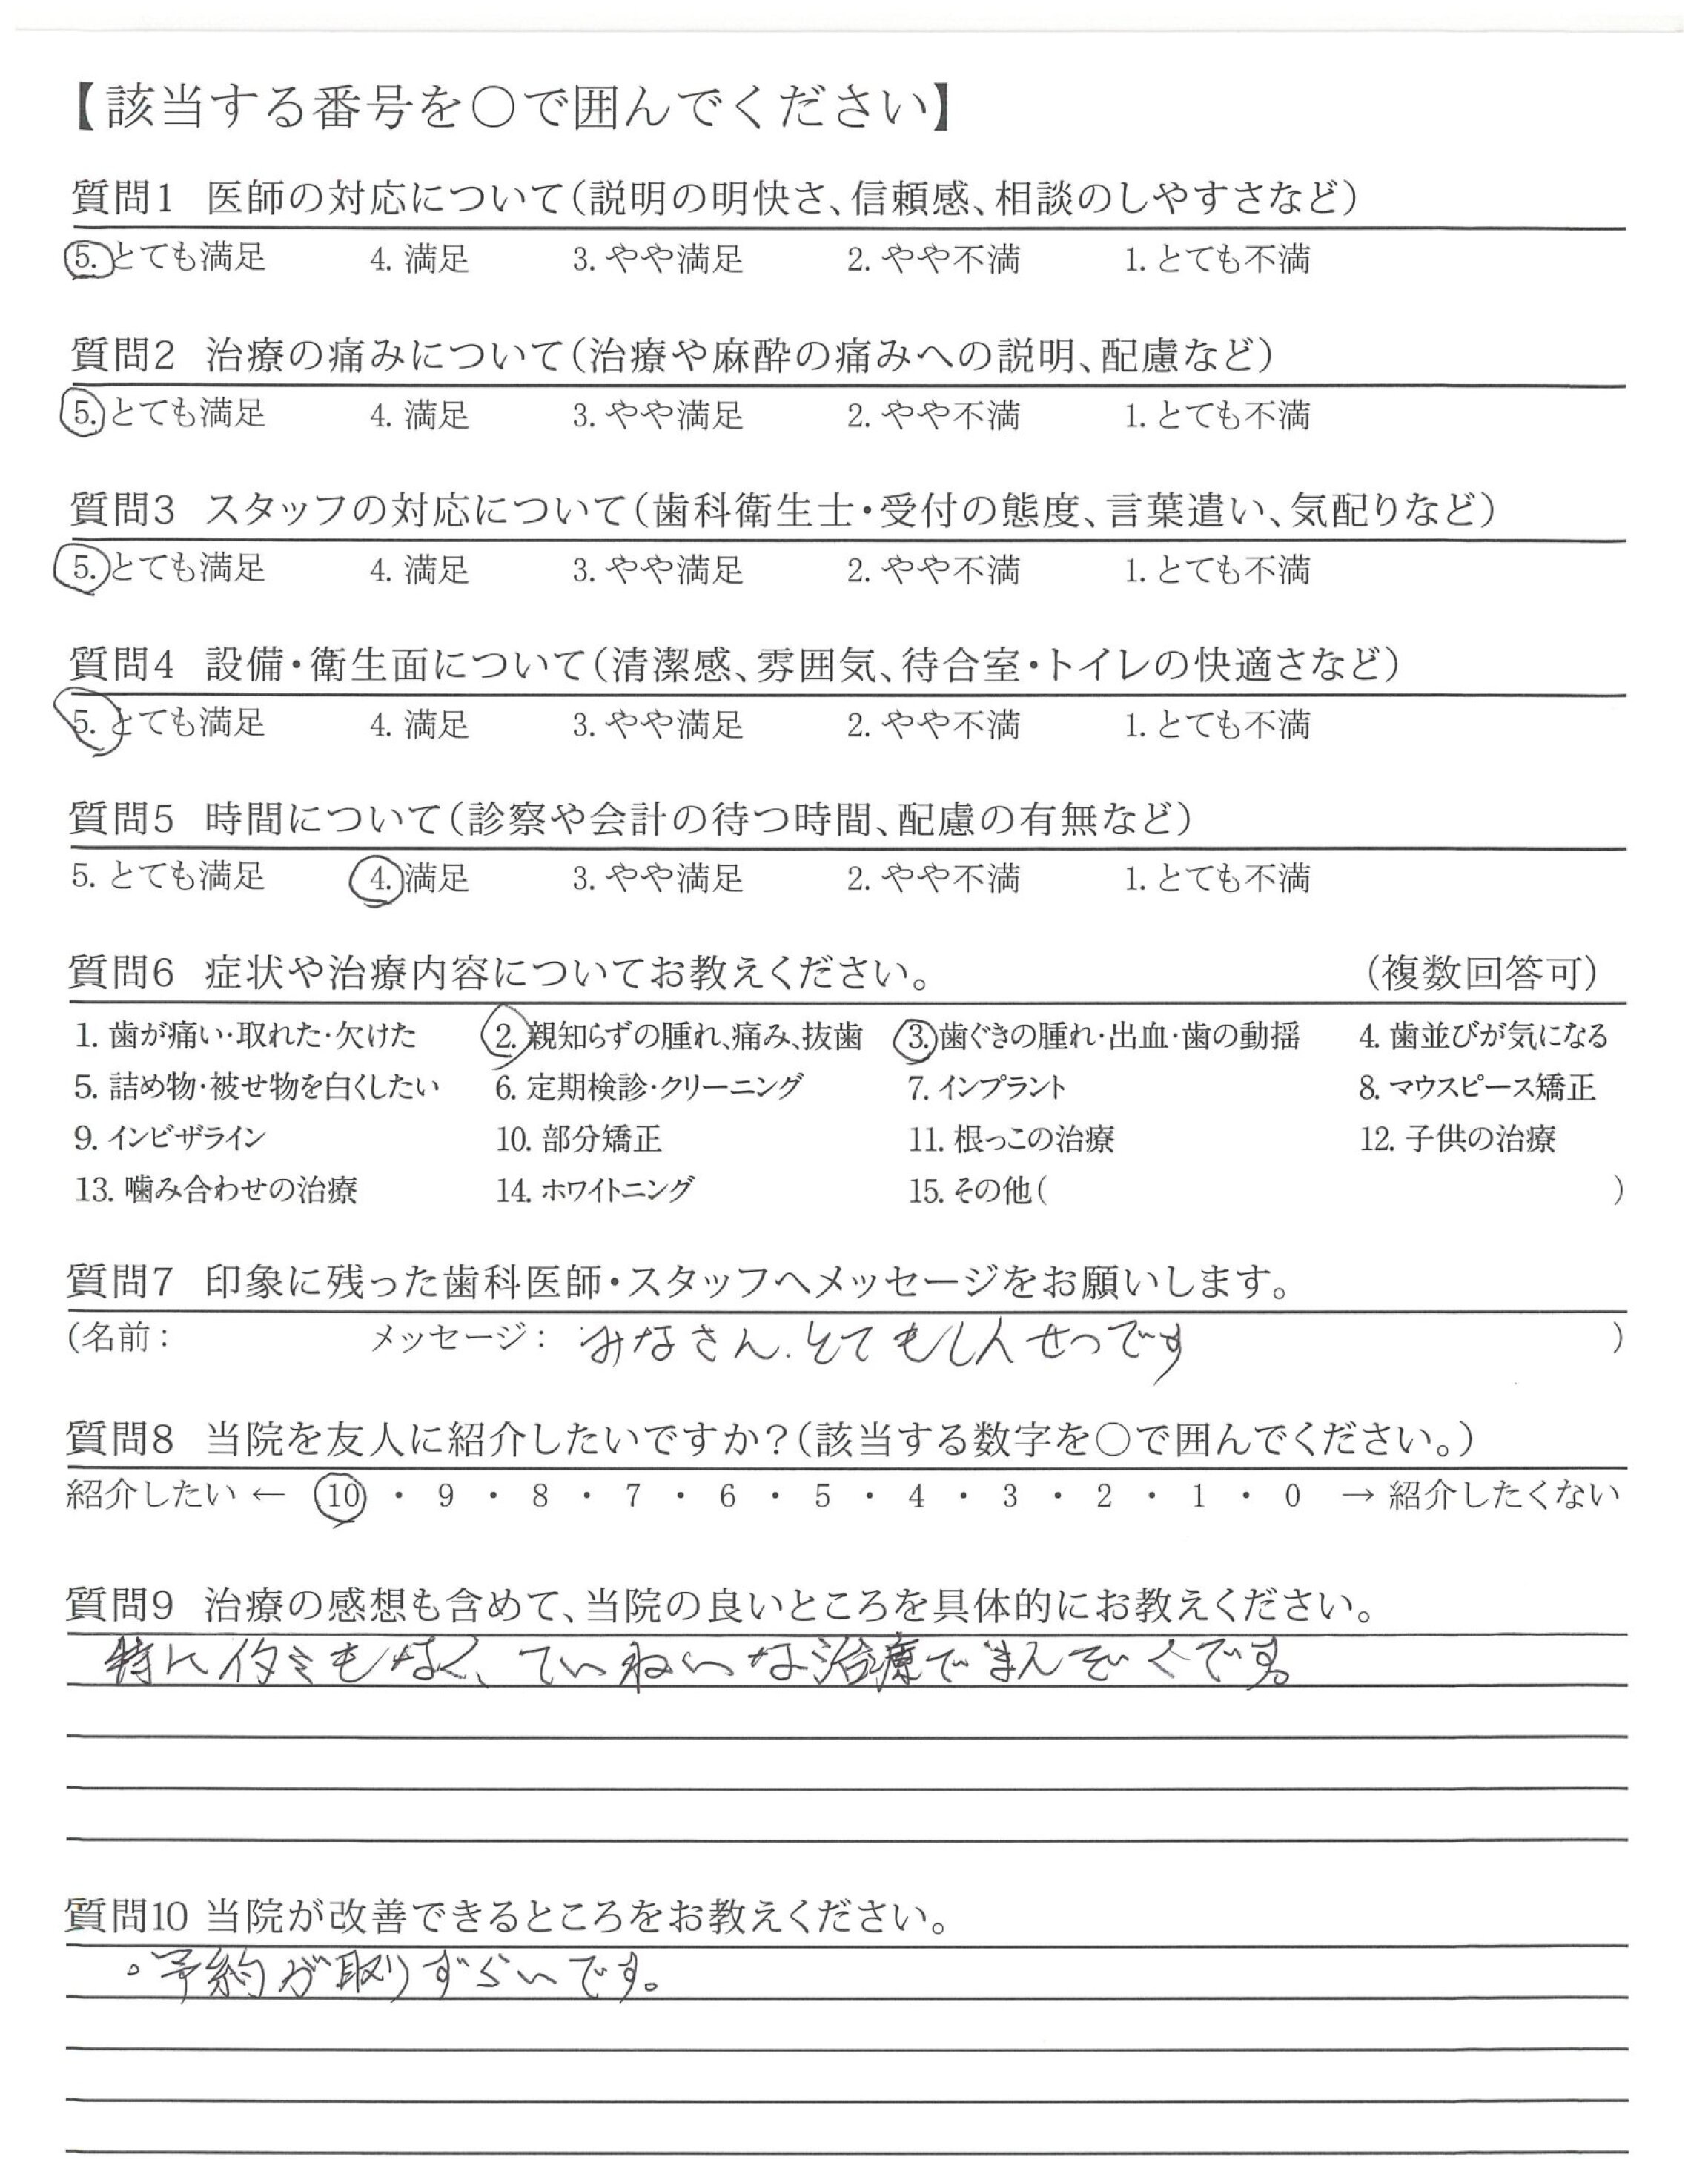 【該当する番号を〇で囲んでください】
質問1 医師の対応について(説明の明快さ、信頼感、相談のしやすさなど)
5. とても満足 4. 満足 3. やや満足 2. やや不満 1. とても不満
質問2 治療の痛みについて(治療や麻酔の痛みへの説明、配慮など)
5. とても満足 4. 満足 3. やや満足 2. やや不満 1. とても不満
質問3 スタッフの対応について(歯科衛生士・受付の態度、言葉遣い、気配りなど)
5. とても満足 4. 満足 3. やや満足 2. やや不満 1. とても不満
質問4 設備・衛生面について(清潔感、雰囲気、待合室・トイレの快適さなど)
5. とても満足 4. 満足 3. やや満足 2. やや不満 1. とても不満
質問5 時間について(診察や会計の待つ時間、配慮の有無など)
5. とても満足 4. 満足 3. やや満足 2. やや不満 1. とても不満
質問6 症状や治療内容についてお教えください。 (複数回答可)
1. 歯が痛い・取れた・欠けた 2. 親知らずの腫れ、痛み、抜歯 3. 歯ぐきの腫れ・出血・歯の動揺 4. 歯並びが気になる
5. 詰め物・被せ物を白くしたい 6. 定期検診・クリーニング 7. インプラント 8. マウスピース矯正
9. インビザライン 10. 部分矯正 11. 根っこの治療 12. 子供の治療
13. 噛み合わせの治療 14. ホワイトニング 15. その他( )
質問7 印象に残った歯科医師・スタッフへメッセージをお願いします。
(名前: メッセージ: みなさん、とてもしんせつです )
質問8 当院を友人に紹介したいですか?(該当する数字を〇で囲んでください。)
紹介したい ← 10 ・ 9 ・ 8 ・ 7 ・ 6 ・ 5 ・ 4 ・ 3 ・ 2 ・ 1 ・ 0 → 紹介したくない
質問9 治療の感想も含めて、当院の良いところを具体的にお教えください。
特に イタミもなく、ていねいな治療で まんぞくです。
質問10 当院が改善できるところをお教えください。
。予約が取りずらいです。